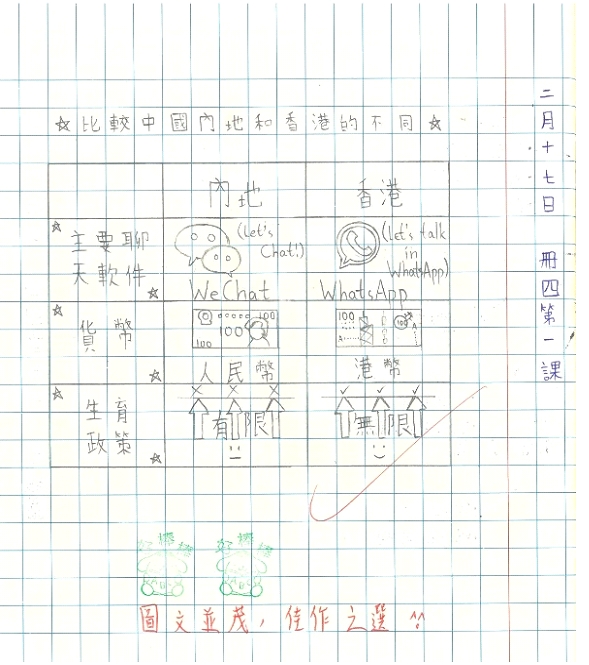 二月十七日 冊四第一課
☆比較中國內地和香港的不同☆
內地 香港
主要聊天軟件
(Let's Chat!)
WeChat
(Let's talk in WhatsApp)
WhatsApp
貨幣
100 100 100
人民幣
100 100
港幣
生育政策
有限
無限
好棒棒 好棒棒
圖文並茂，佳作之選 ^^